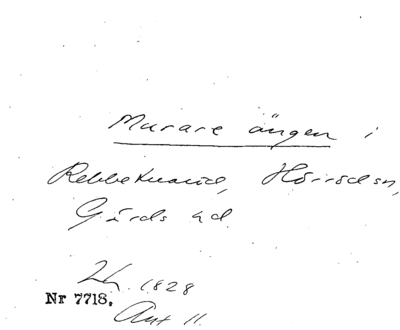 Murare ängen i
Rebbetuaröd, Hörröds sn,
Gärds hd.
Lh. 1828
Nr 7718.
Akt 11.